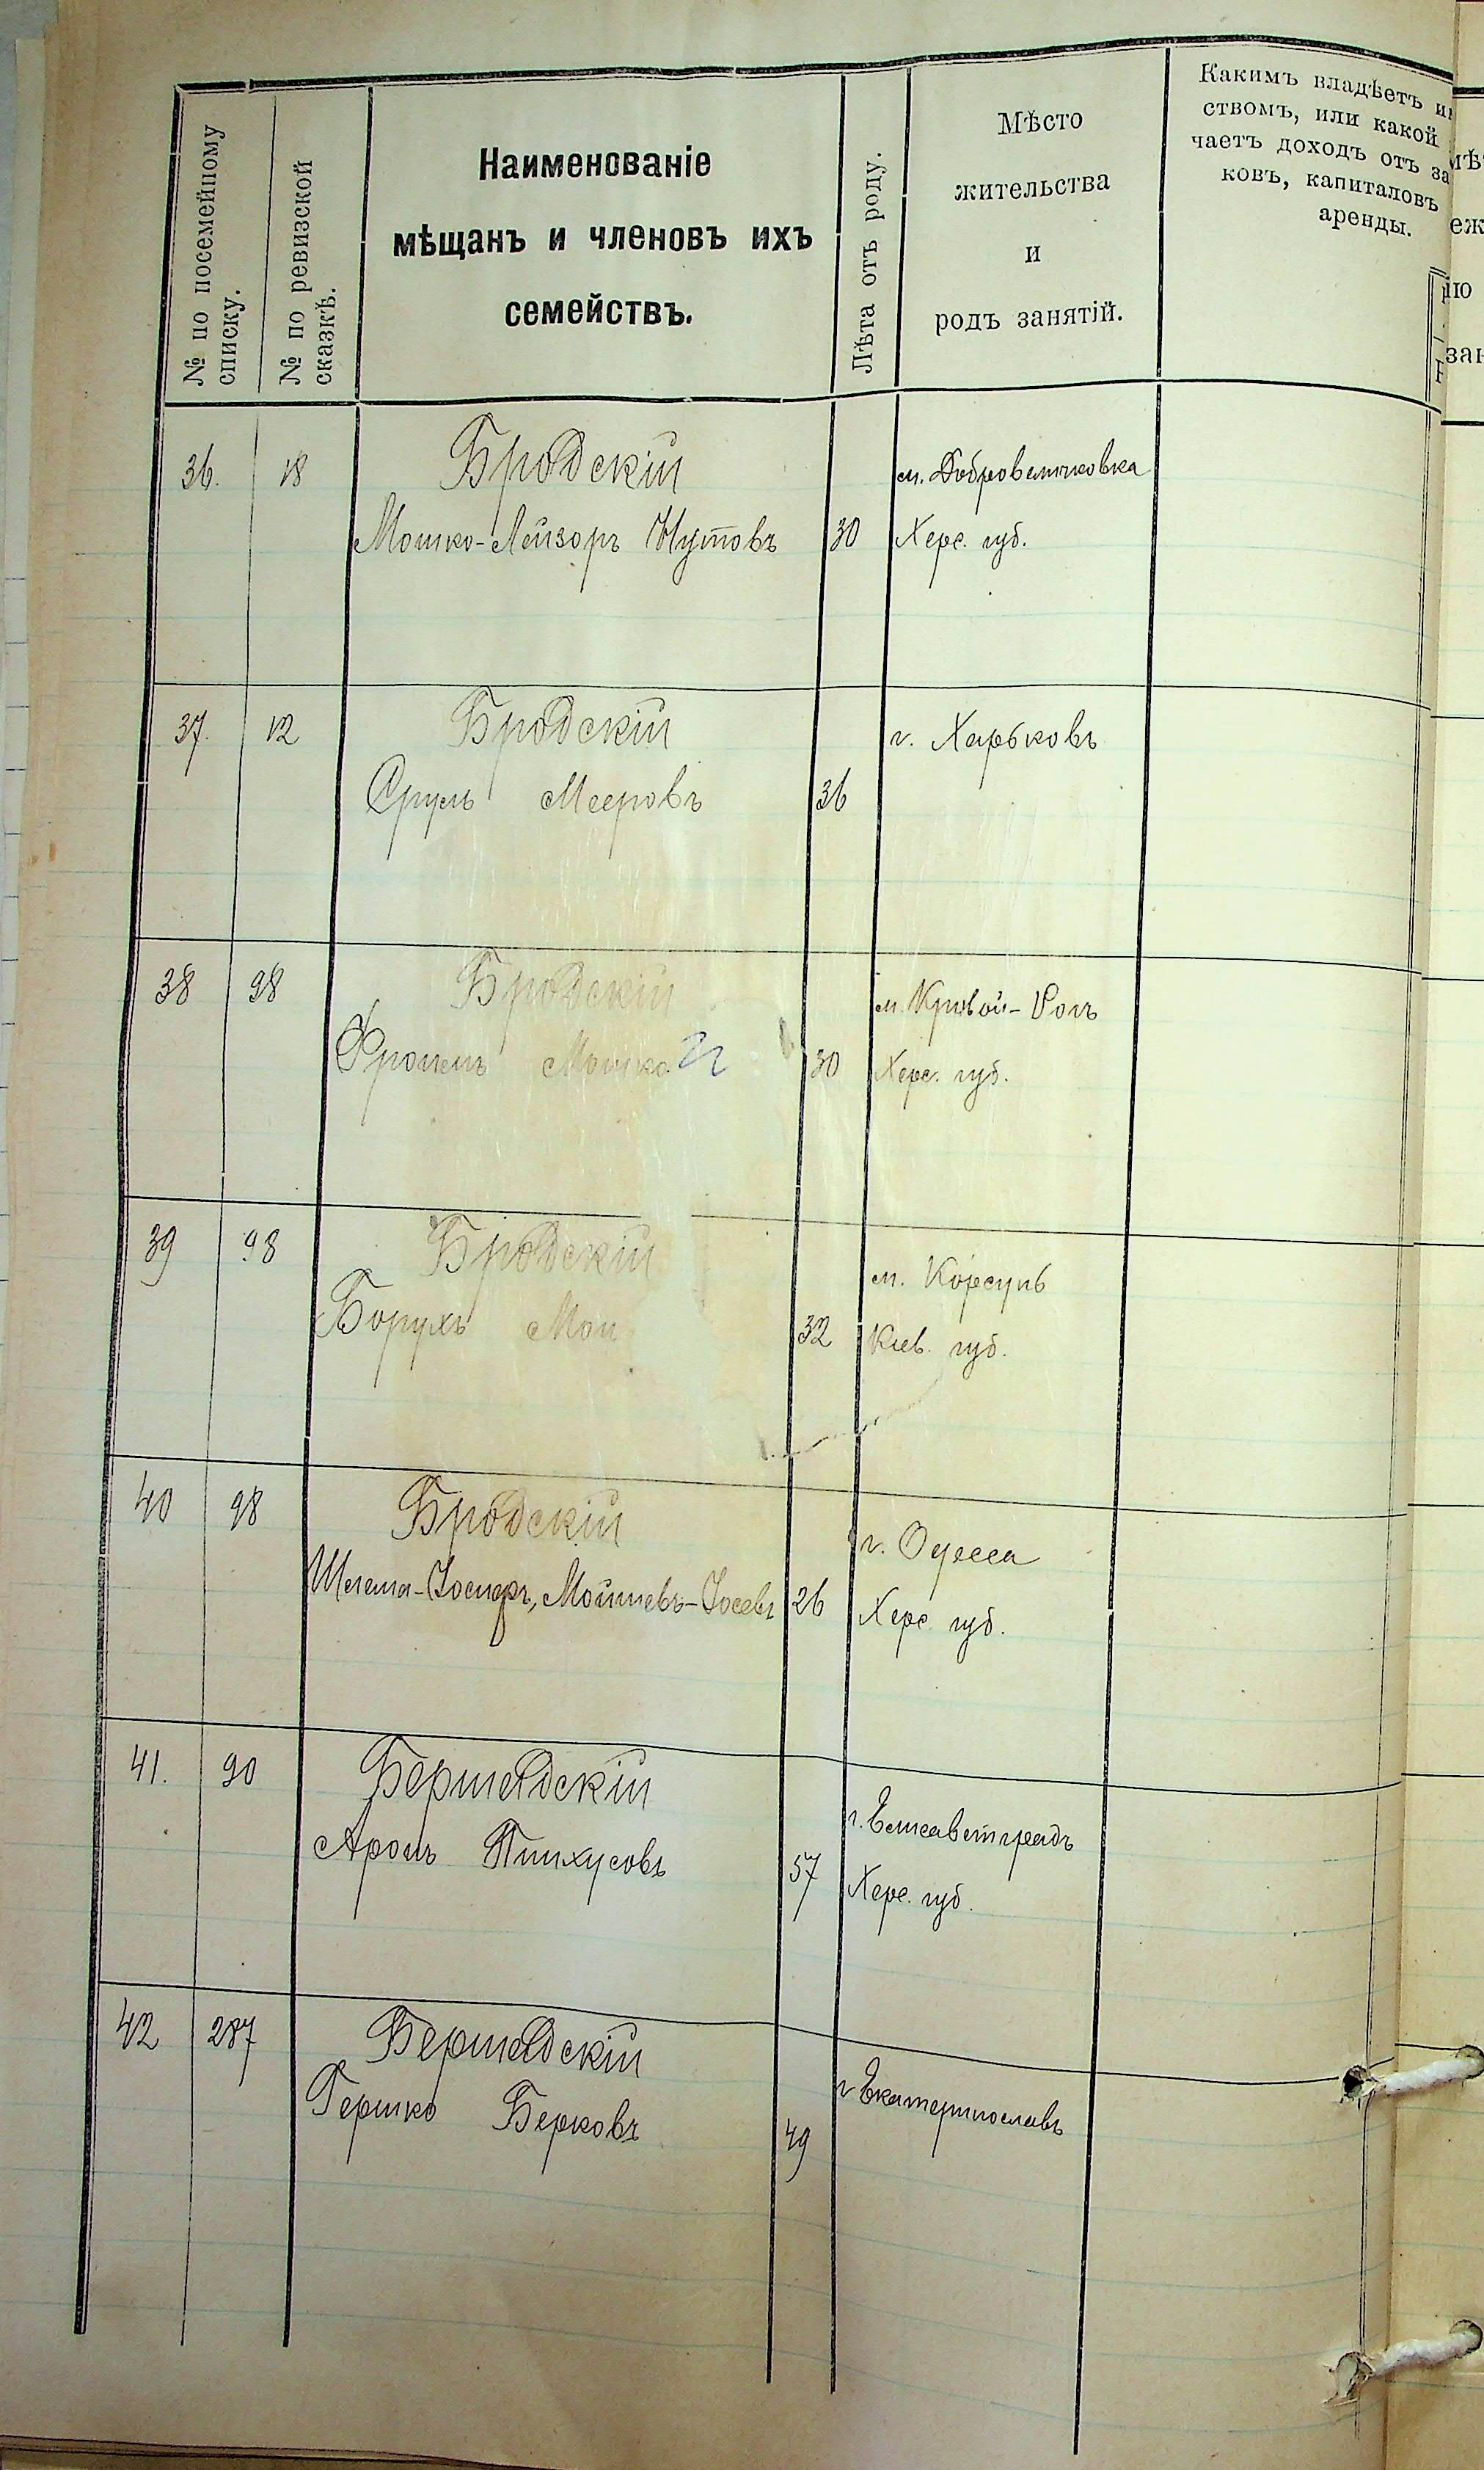 № по посемейному
списку.
№ по ревизской
сказкѣ.
Наименованіе
мѣщанъ и членовъ ихъ
семействъ.
Лѣта отъ роду.
Мѣсто
жительства
и
родъ занятій.
Какимъ владѣетъ и
ствомъ, или какой
чаетъ доходъ отъ за
ковъ, капиталовъ
аренды.
36. 18 Бродскій м. Добровеличковка
Мошко-Лейзоръ Нутовъ 30 Херс. губ.
37. 12 Бродскій г. Харьковъ
Сруль Мееровъ 36
38 98 Бродскій м. Кривой-Рогъ
Фроимъ Мошко 30 Херс. губ.
39 98 Бродскій м. Корсунь
Борухъ Мош 32 Кіев. губ.
40 98 Бродскій г. Одесса
Мойшевъ-Іосевъ 26 Херс. губ.
41. 90 Бершадскій г. Елисаветградъ
Аронъ Пинхусовъ 57 Херс. губ.
42 287 Бершадскій г Екатеринославъ
Гершко Берковъ 49